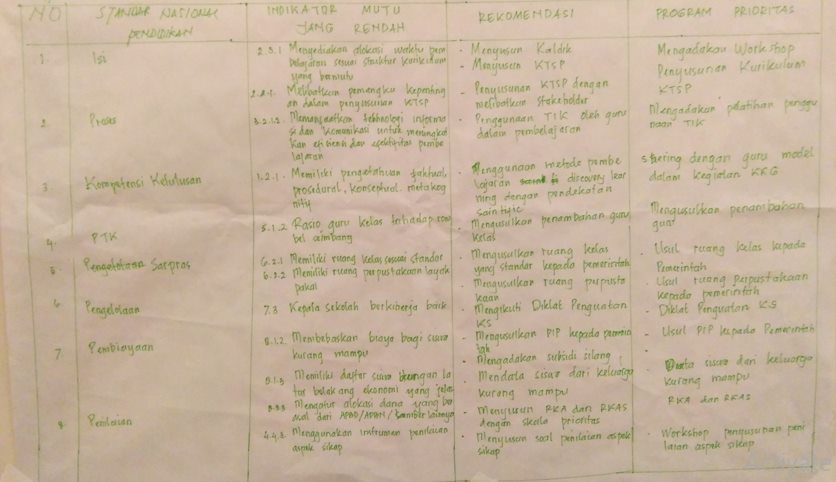 NO
STANDAR NASIONAL
PENDIDIKAN
INDIKATOR MUTU
YANG RENDAH
REKOMENDASI
PROGRAM PRIORITAS
1.
Isi
2.3.1 Menyediakan alokasi waktu pem
belajaran sesuai struktur kurikulum
yang bermutu
- Menyusun Kaldik
- Menyusun KTSP
Mengadakan Workshop
Penyusunan Kurikulum
KTSP
2.2.1. Melibatkan pemangku kepenting
an dalam penyusunan KTSP
- Penyusunan KTSP dengan
melibatkan stakeholder
2.
Proses
3.2.1.2. Memanfaatkan tehnologi informa
si dan komunikasi untuk meningkat
kan efisiensi dan efektifitas pembe
lajaran
- Penggunaan TIK oleh guru
dalam pembelajaran
Mengadakan pelatihan penggu
naan TIK
3.
Kompetensi Kelulusan
1.2.1. Memiliki pengetahuan faktual,
prosedural, konseptual, metakog
nitif
- Penggunaan metode pembe
lajaran discovery lear
ning dengan pendekatan
saintific
dengan guru model
dalam kegiatan KKG
4.
PTK
5.1.2 Rasio guru kelas terhadap rom
bel seimbang
- Mengusulkan penambahan guru
kelas
Mengusulkan penambahan
guru
5.
Pengelolaan Sarpras
6.2.1 Memiliki ruang kelas sesuai standar
6.2.2 Memiliki ruang perpustakaan layak
pakai
- Mengusulkan ruang kelas
yang standar kepada pemerintah
- Mengusulkan ruang perpusta
kaan
- Usul ruang kelas kepada
Pemerintah
- Usul ruang perpustakaan
kepada pemerintah
6
Pengelolaan
7.3 Kepala sekolah berkinerja baik
- Mengikuti Diklat Penguatan
KS
- Diklat Penguatan KS
7.
Pembiayaan
8.1.2. Membebaskan biaya bagi siswa
kurang mampu
- Mengusulkan PIP kepada pemerin
tah
- Mengadakan subsidi silang
- Usul PIP kepada Pemerintah
8.1.3 Memiliki daftar siswa dengan la
tar belakang ekonomi yang jelas
- Mendata siswa dari keluarga
kurang mampu
- Data siswa dari keluarga
kurang mampu
Mengatur alokasi dana yang be
rasal dari APBD/APBN/sumber lainnya
- Menyusun RKA dan RKAS
dengan skala prioritas
RKA dan RKAS
8.
Penilaian
4.4.3. Menggunakan instrumen penilaian
aspek sikap
- Menyusun soal penilaian aspek
sikap
- Workshop penyusunan peni
laian aspek sikap